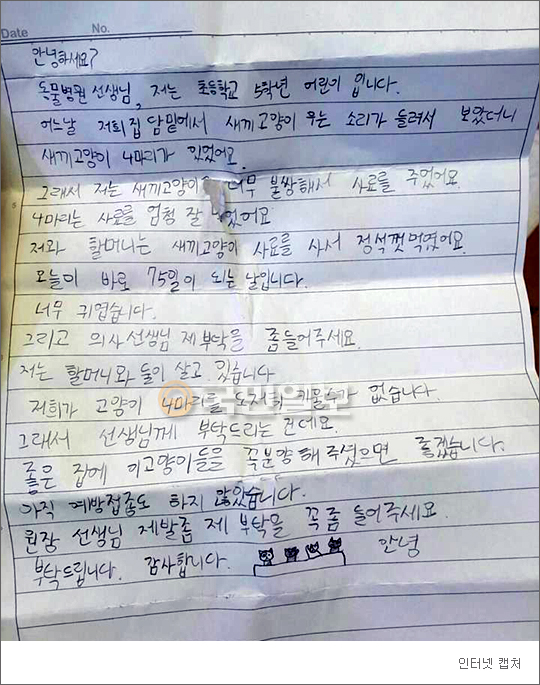 Date No.
안녕하세요?
동물병원 선생님, 저는 초등학교 5학년 어린이 입니다.
어느날 저희 집 담밑에서 새끼고양이 우는 소리가 들려서 보았더니
새끼고양이 4마리가 있었어요.
그래서 저는 새끼고양이 너무 불쌍해서 사료를 주었어요
4마리는 사료를 엄청 잘 었어요
저와 할머니는 새끼고양이 사료를 사서 정성껏먹였어요.
오늘이 바로 75일이 되는 날입니다.
너무 귀엽습니다.
그리고 의사선생님 제 부탁을 좀들어주세요.
저는 할머니와 둘이 살고 있습니다
저희가 고양이 4마리를 도저히 키울수가 없습니다.
그래서 선생님께 부탁드리는 건데요.
좋은 집에 이고양이들을 꼭분양 해 주셨으면 좋겠습니다.
아직 예방접종도 하지 않았습니다.
원장 선생님 제발좀 제 부탁을 꼭좀 들어주세요.
부탁드립니다. 감사합니다. 안녕
인터넷 캡처